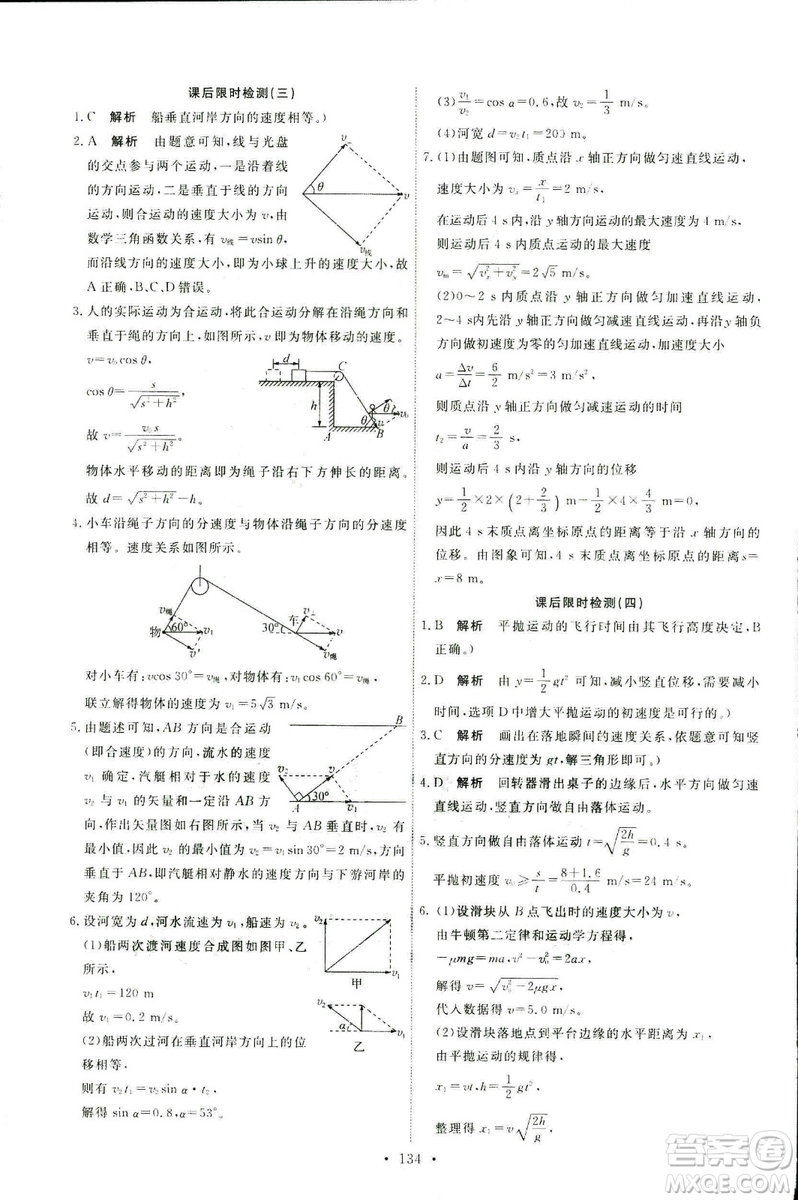 课后限时检测(三)
1. C 解析 船垂直河岸方向的速度相等。)
2. A 解析 由题意可知，线与光盘
的交点参与两个运动，一是沿着线
的方向运动，二是垂直于线的方向
运动，则合运动的速度大小为 v，由
数学三角函数关系，有 v线=vsin θ，
而沿线方向的速度大小，即为小球上升的速度大小，故
A正确，B、C、D错误。
v
θ
v线
3. 人的实际运动为合运动，将此合运动分解在沿绳方向和
垂直于绳的方向上，如图所示，v 即为物体移动的速度。
v=v0cos θ，
cos θ=s/√(s²+h²)
故 v=v0s/√(s²+h²)
d
C
h
θ
θ
v0
A
B
物体水平移动的距离即为绳子沿右下方伸长的长度。
故 d=√(s²+h²)-h。
4. 小车沿绳子方向的分速度与物体沿绳子方向的分速度
相等。速度关系如图所示。
v绳
物
60°
v1
30°
车
v2
v
v绳
对小车有：vcos 30°=v绳，对物体有：v1cos 60°=v绳
联立解得物体的速度为 v1=5√3 m/s。
5. 由题述可知，AB 方向是合运动
(即合速度)的方向，流水的速度
v1 确定，汽艇相对于静水的速度
v2 与 v1 的矢量和一定沿 AB 方
向，作出矢量图如图所示。由图
可知，当 v2 与 AB 垂直时，v2 有
最小值，为 v2 min=v1sin 30°=2 m/s。由图知，v2 的方向
垂直于 AB，即汽艇相对静水的速度方向与下游河岸的
夹角为 120°。
B
v2
v
A
30°
v1
6. 设河宽为 d，河水流速为 v1，船速为 v2。
(1)船两次渡河速度合成图如图甲、乙
所示，
v1t1=120 m
故 v1=0.2 m/s。
(2)船两次过河在垂直河岸方向上的位
移相等，
则有 v2t1=v2t2sin α·t2
解得 sin α=0.8，α=53°。
v2
v1
甲
v2
α
v1
乙
(3)v1/v2=cos α=0.6，故 v2=1/3 m/s。
(4)河宽 d=v2t1=200 m。
7. (1)由题图可知，质点沿 x 轴正方向做匀速直线运动，
速度大小为 vx=x/t1=2 m/s，
在运动后 4 s内，沿 y 轴方向运动的最大速度为 4 m/s，
则运动后 4 s内质点运动的最大速度为
vm=√(vx²+vy²)=2√5 m/s。
(2)0~2 s内质点沿 y 轴正方向做匀加速直线运动，
2~4 s内先沿 y 轴正方向做匀减速直线运动，再沿 y 轴负
方向做初速度为零的匀加速运动，加速度大小
a=Δv/Δt=6/2 m/s²=3 m/s²
则质点沿 y 轴正方向做匀减速运动的时间
t2=v/a=2/3 s。
则运动后 4 s内沿 y 轴方向的位移
y=1/2×2×(2+2/3) m-1/2×4×4/3 m=0
因此 4 s末质点离坐标原点的距离等于沿 x 轴方向的
位移。由图象可知，4 s末质点离坐标原点的距离 s=
x=8 m。
课后限时检测(四)
1. B 解析 平抛运动的飞行时间由其飞行高度决定，B
正确。)
2. D 解析 由 y=1/2gt² 可知，减小竖直位移，需要减小
时间，选项 D中增大平抛运动的初速度是可行的。)
3. C 解析 画出在落地瞬间的速度关系，如图所示，竖
直方向的分速度为 gt，解三角形即可。)
4. D 解析 回转器滑出桌子的边缘后，水平方向做匀速
直线运动，竖直方向做自由落体运动。
5. 竖直方向做自由落体运动 t=√(2h/g)=0.4 s，
平抛初速度 v0≥s/t=(8+1.6)/0.4(m/s)=24 m/s。
6. (1)设滑块从 B 点飞出时的速度大小为 v，
由牛顿第二定律和运动学方程得，
-μmg=ma，v²-v0²=2ax，
解得 v=√(v0²-2μgx)，
代入数据得 v=5.0 m/s。
(2)设滑块落地点到平台边缘的水平距离为 x1，
由平抛运动的规律得，
x1=vt，h=1/2gt²，
整理得 x1=v√(2h/g)，
134
答案圈
MXQE.COM